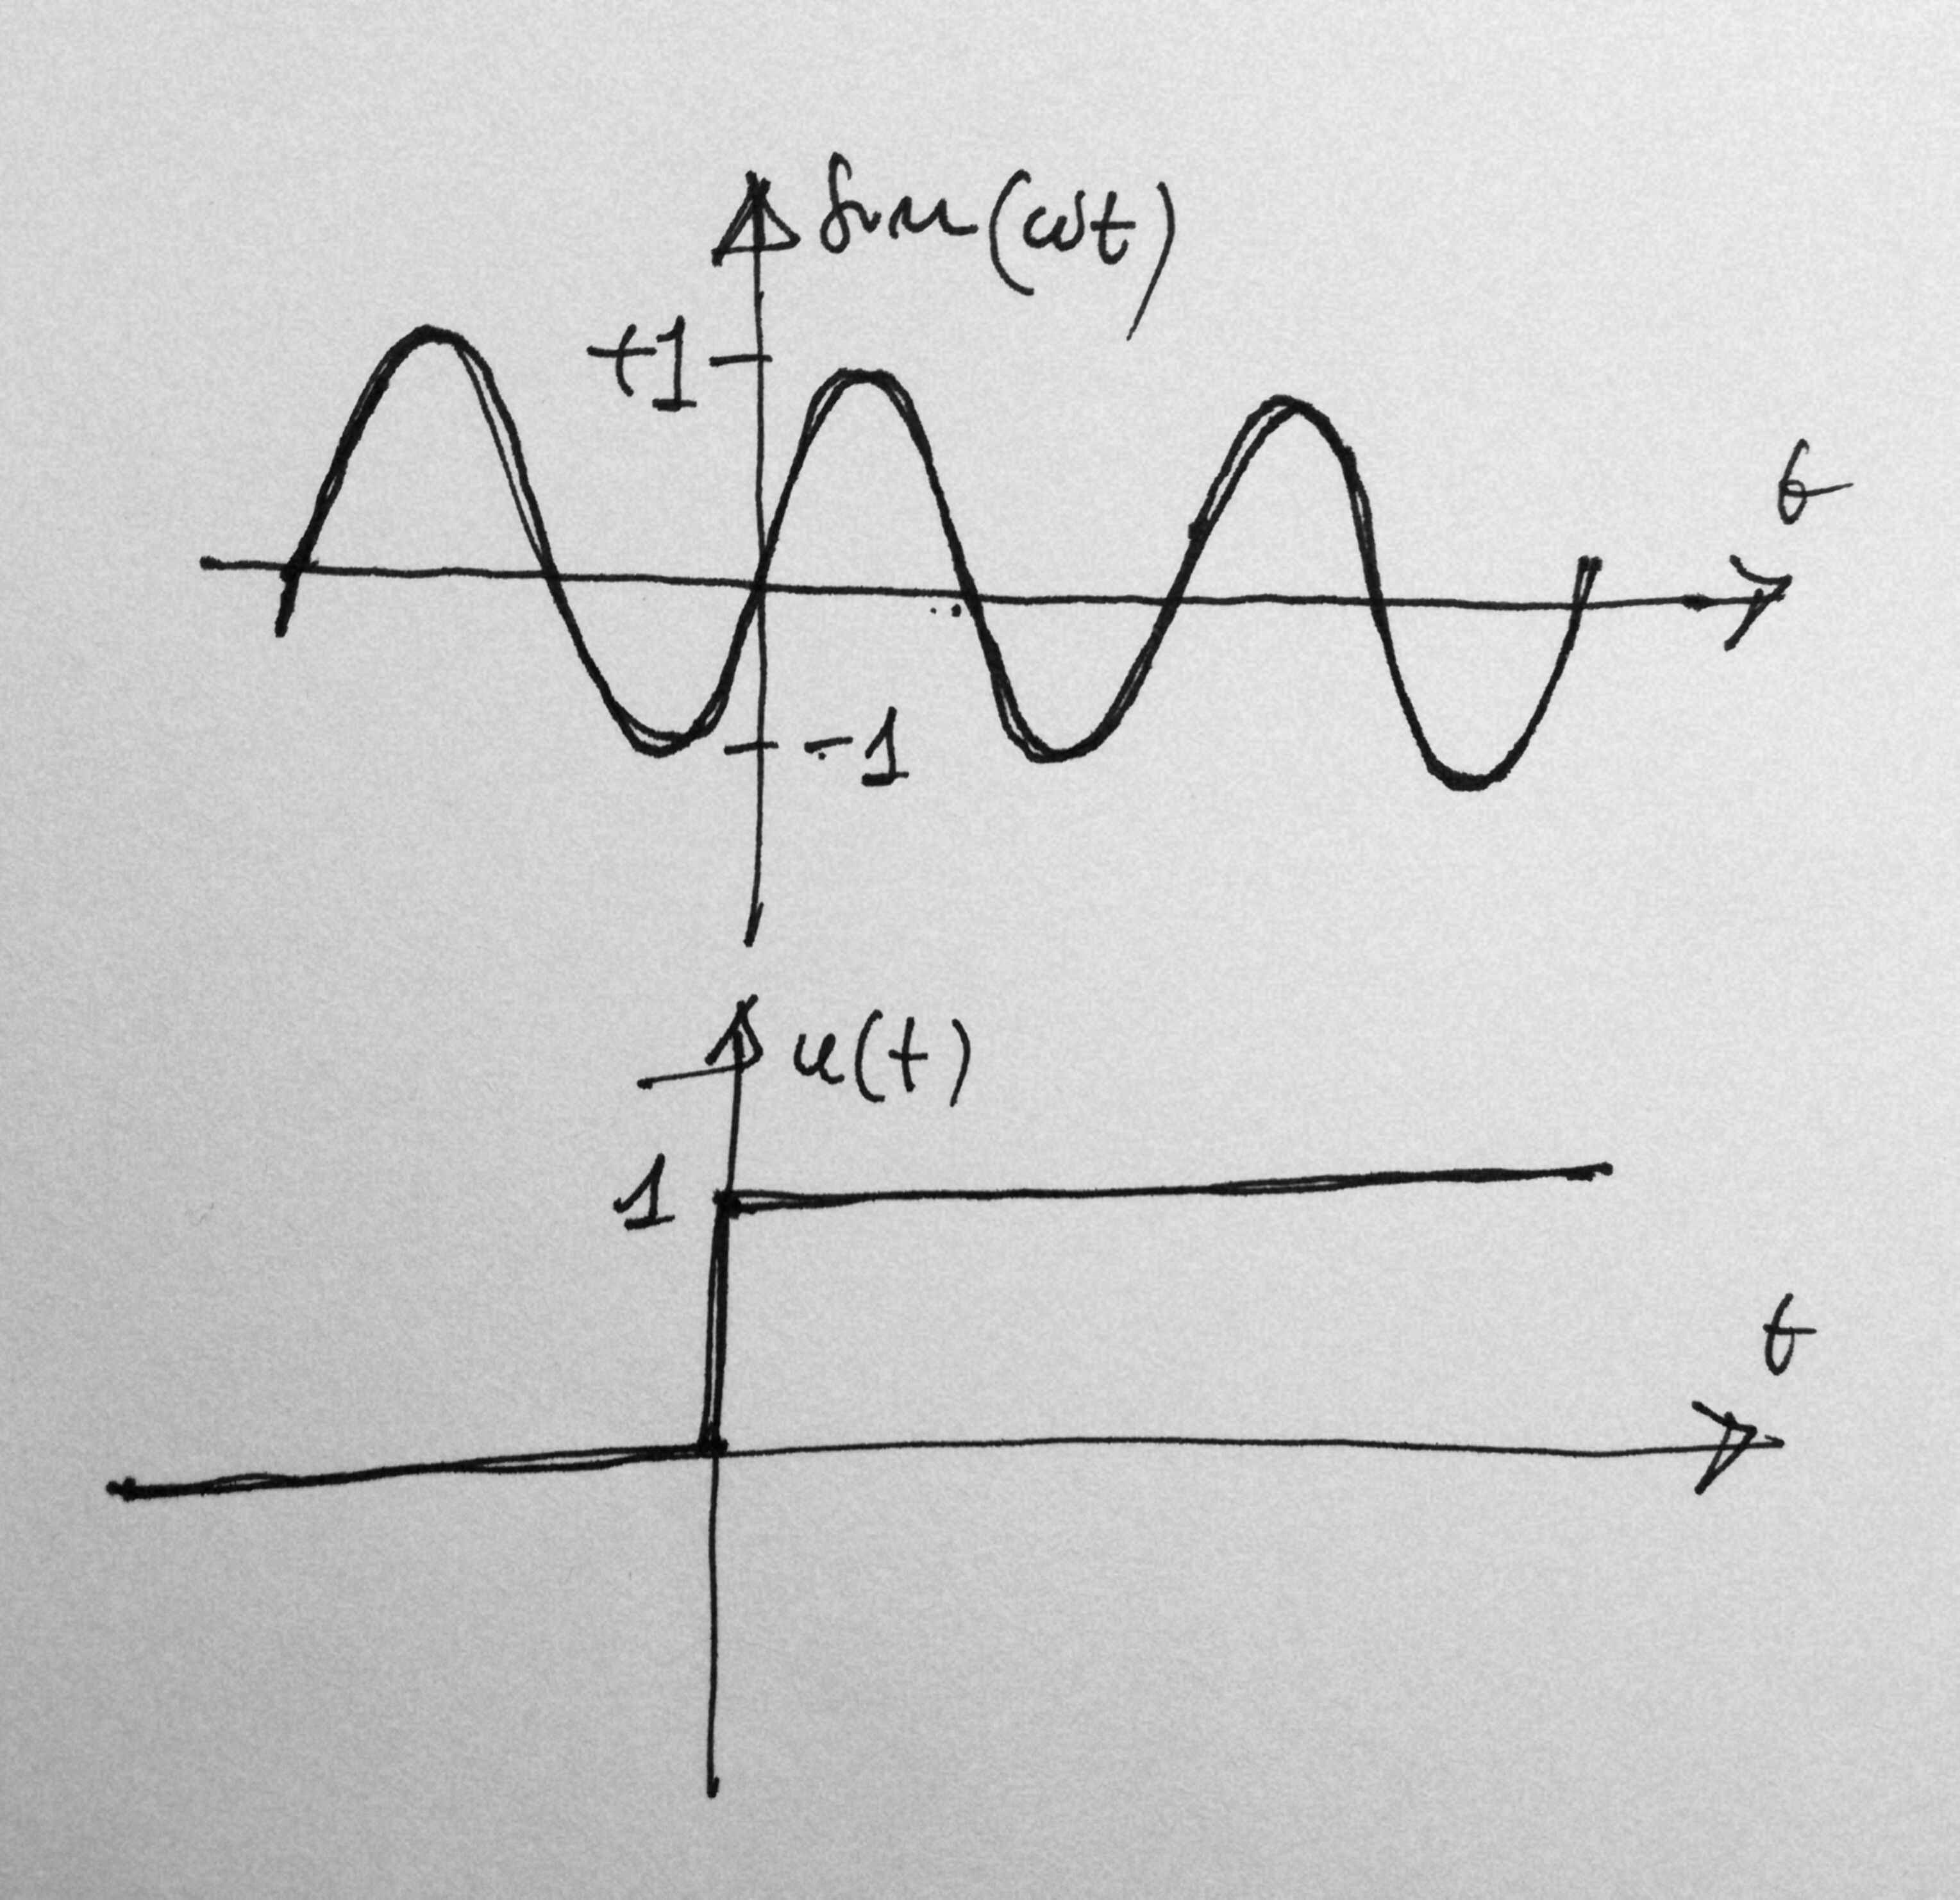 sin(ωt)
+1
t
-1
u(t)
1
t